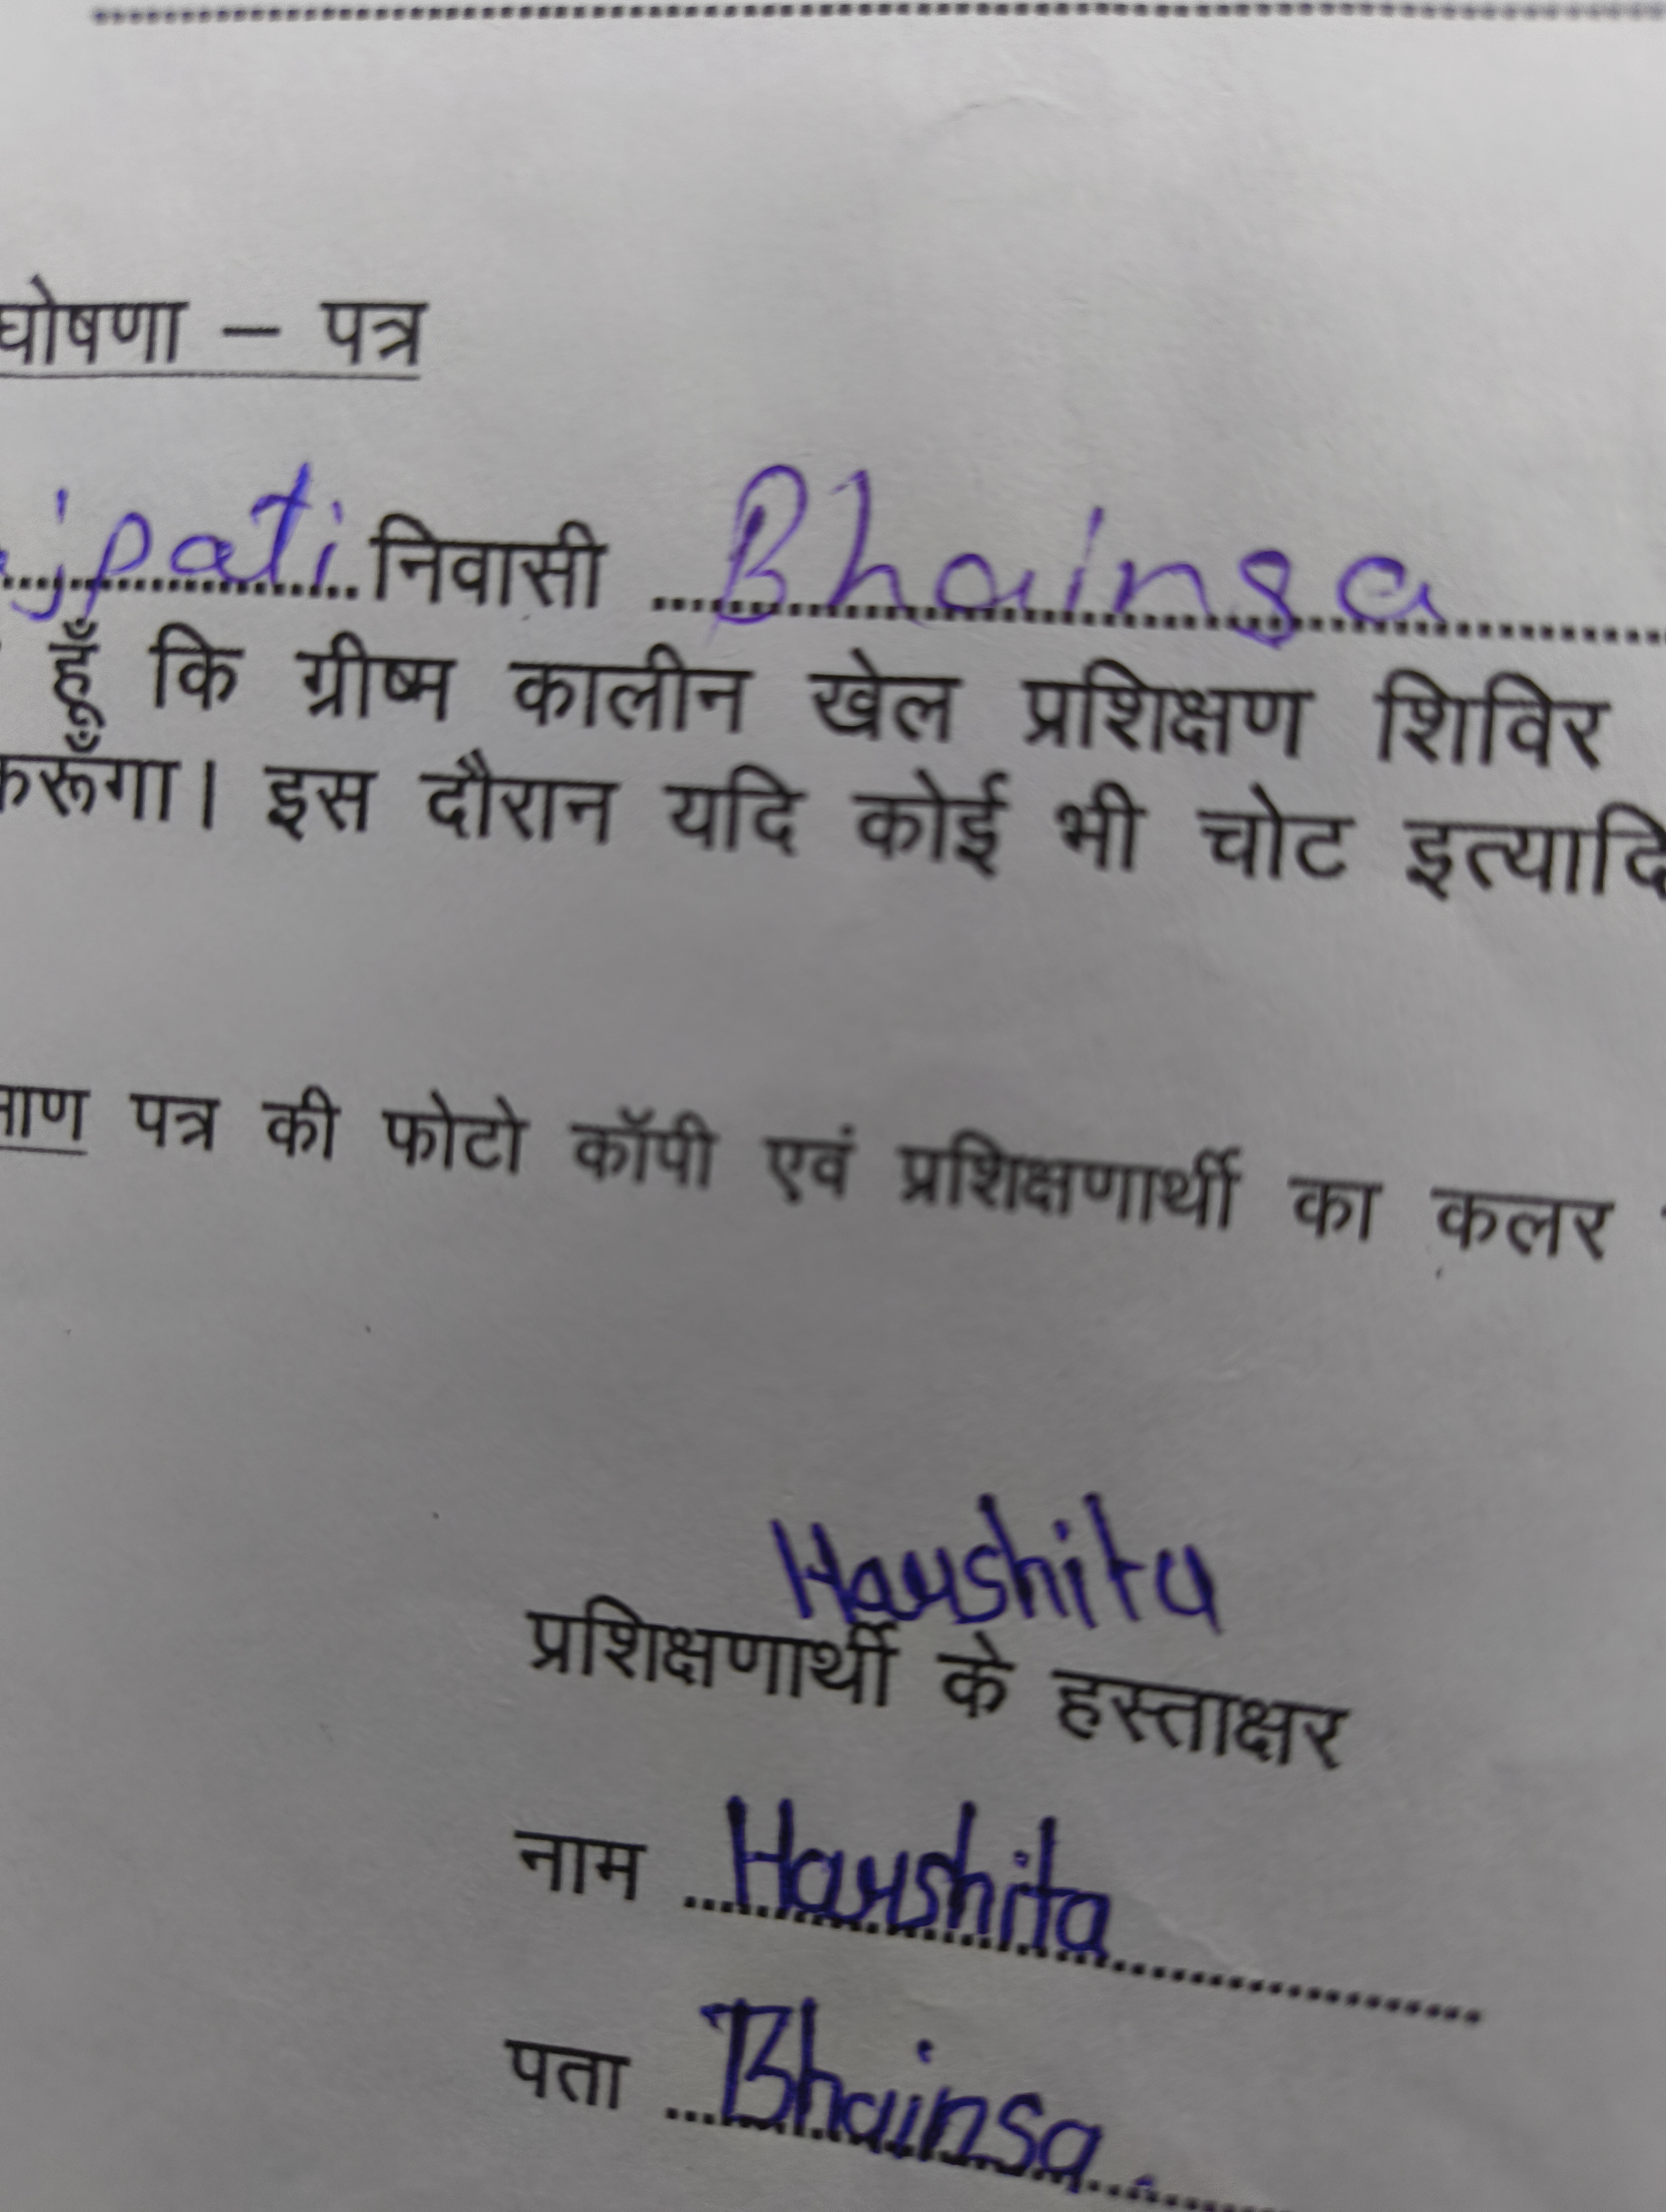 घोषणा – पत्र
jpati निवासी Bhainsa
हूँ कि ग्रीष्म कालीन खेल प्रशिक्षण शिविर
करूँगा। इस दौरान यदि कोई भी चोट इत्यादि
पत्र की फोटो कॉपी एवं प्रशिक्षणार्थी का कलर
Harshita
प्रशिक्षणार्थी के हस्ताक्षर
नाम Harshita
पता Bhainsa.